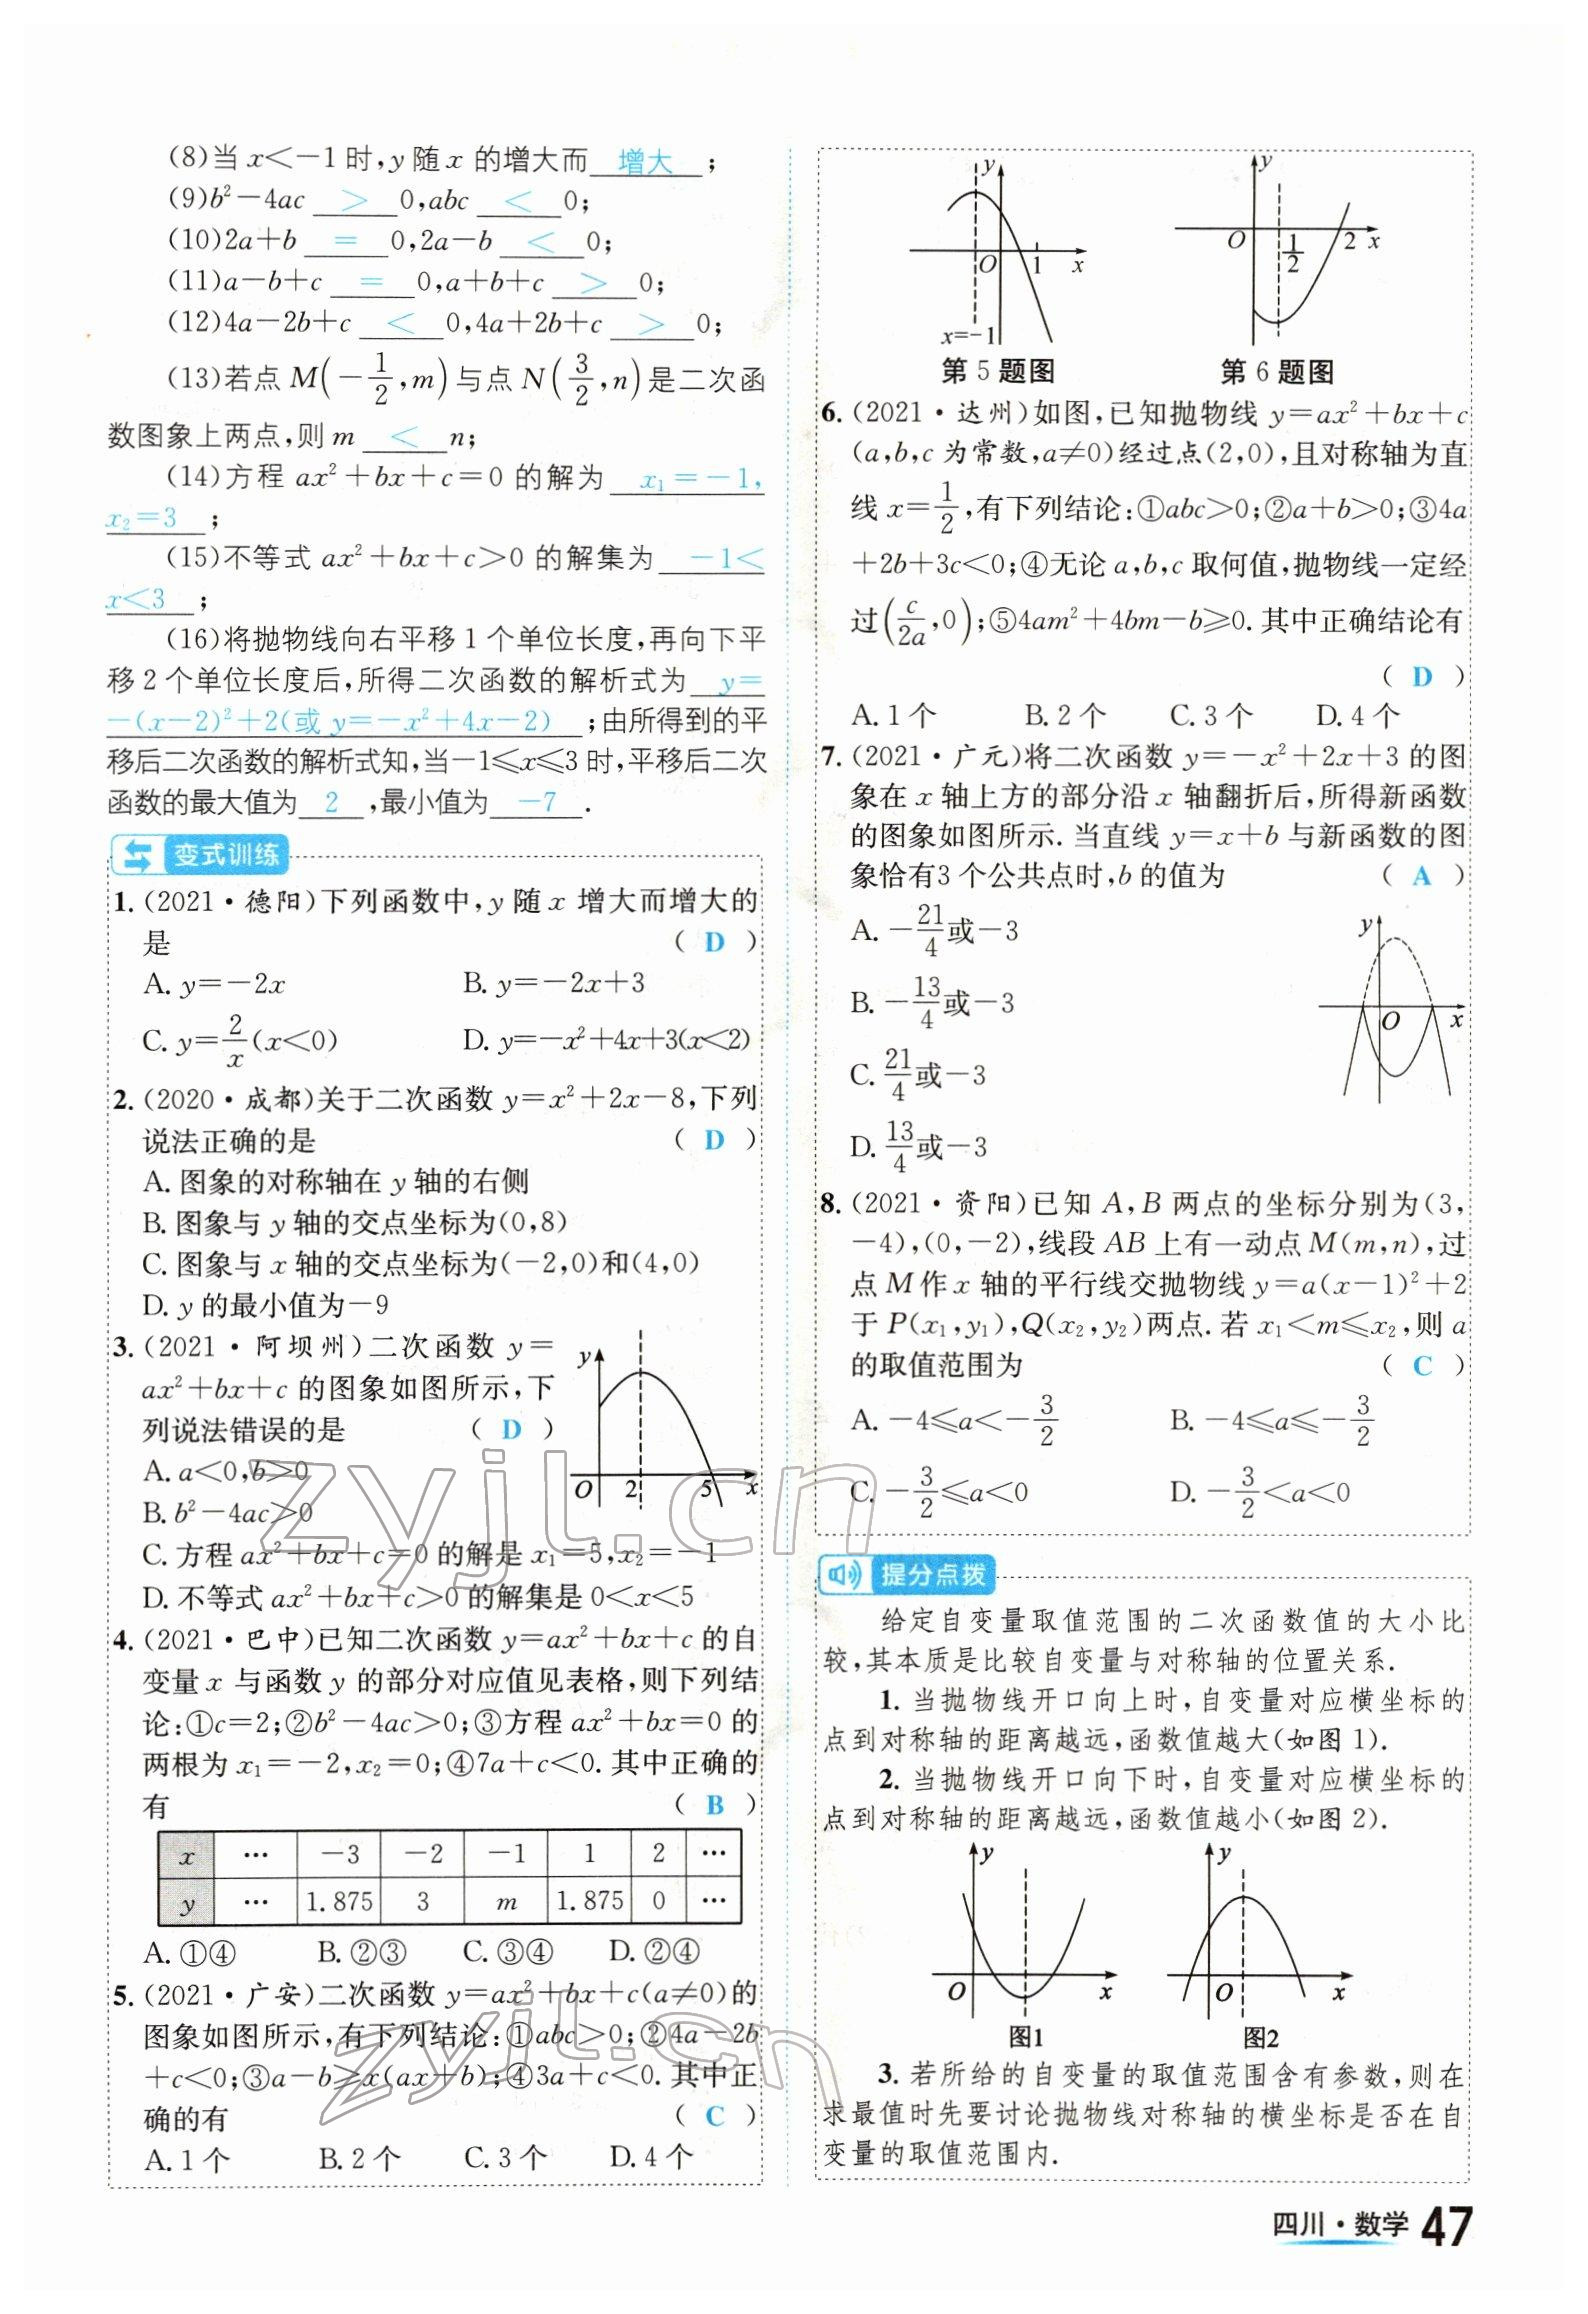 (8)当 x<-1 时,y 随 x 的增大而 增大 ;
(9)b²-4ac > 0,abc < 0;
(10)2a+b = 0,2a-b < 0;
(11)a-b+c = 0,a+b+c > 0;
(12)4a-2b+c < 0,4a+2b+c > 0;
(13)若点 M(-1/2,m)与点 N(3/2,n)是二次函
数图象上两点,则 m < n;
(14)方程 ax²+bx+c=0 的解为 x₁=-1,
x₂=3 ;
(15)不等式 ax²+bx+c>0 的解集为 -1<
x<3 ;
(16)将抛物线向右平移 1 个单位长度,再向下平
移 2 个单位长度后,所得二次函数的解析式为 y=
-(x-2)²+2(或 y=-x²+4x-2) ;由所得到的平
移后二次函数的解析式知,当-1≤x≤3 时,平移后二次
函数的最大值为 2 ,最小值为 -7 .
变式训练
1. (2021·德阳)下列函数中,y 随 x 增大而增大的
是 ( D )
A. y=-2x B. y=-2x+3
C. y=2/x(x<0) D. y=-x²+4x+3(x<2)
2. (2020·成都)关于二次函数 y=x²+2x-8,下列
说法正确的是 ( D )
A. 图象的对称轴在 y 轴的右侧
B. 图象与 y 轴的交点坐标为(0,8)
C. 图象与 x 轴的交点坐标为(-2,0)和(4,0)
D. y 的最小值为-9
3. (2021·阿坝州)二次函数 y=
ax²+bx+c 的图象如图所示,下
列说法错误的是 ( D )
A. a<0,b>0
B. b²-4ac>0
C. 方程 ax²+bx+c=0 的解是 x₁=5,x₂=-1
D. 不等式 ax²+bx+c>0 的解集是 0<x<5
y
O 2 5 x
4. (2021·巴中)已知二次函数 y=ax²+bx+c 的自
变量 x 与函数 y 的部分对应值见表格,则下列结
论:①c=2;②b²-4ac>0;③方程 ax²+bx=0 的
两根为 x₁=-2,x₂=0;④7a+c<0. 其中正确的
有 ( B )
x … -3 -2 -1 1 2 …
y … 1.875 3 m 1.875 0 …
A. ①④ B. ②③ C. ③④ D. ②④
5. (2021·广安)二次函数 y=ax²+bx+c(a≠0)的
图象如图所示,有下列结论:①abc>0;②4a-2b
+c<0;③a-b≥x(ax+b);④3a+c<0. 其中正
确的有 ( C )
A. 1 个 B. 2 个 C. 3 个 D. 4 个
y
O 1 x
x=-1
第 5 题图
y
O 1/2 2 x
第 6 题图
6. (2021·达州)如图,已知抛物线 y=ax²+bx+c
(a,b,c 为常数,a≠0)经过点(2,0),且对称轴为直
线 x=1/2,有下列结论:①abc>0;②a+b>0;③4a
+2b+3c<0;④无论 a,b,c 取何值,抛物线一定经
过(c/2a,0);⑤4am²+4bm-b≥0. 其中正确结论有
( D )
A. 1 个 B. 2 个 C. 3 个 D. 4 个
7. (2021·广元)将二次函数 y=-x²+2x+3 的图
象在 x 轴上方的部分沿 x 轴翻折后,所得新函数
的图象如图所示. 当直线 y=x+b 与新函数的图
象恰有3 个公共点时,b 的值为 ( A )
A. -21/4或-3
B. -13/4或-3
C. 21/4或-3
D. 13/4或-3
y
O x
8. (2021·资阳)已知 A,B 两点的坐标分别为(3,
-4),(0,-2),线段 AB 上有一动点 M(m,n),过
点 M 作 x 轴的平行线交抛物线 y=a(x-1)²+2
于 P(x₁,y₁),Q(x₂,y₂)两点. 若 x₁<m≤x₂,则 a
的取值范围为 ( C )
A. -4≤a<-3/2 B. -4≤a≤-3/2
C. -3/2≤a<0 D. -3/2<a<0
提分点拨
给定自变量取值范围的二次函数值的大小比
较,其本质是比较自变量与对称轴的位置关系.
1. 当抛物线开口向上时,自变量对应横坐标的
点到对称轴的距离越远,函数值越大(如图 1).
2. 当抛物线开口向下时,自变量对应横坐标的
点到对称轴的距离越远,函数值越小(如图 2).
y
O x
图1
y
O x
图2
3. 若所给的自变量的取值范围含有参数,则在
求最值时先要讨论抛物线对称轴的横坐标是否在自
变量的取值范围内.
四川·数学 47
zyjl.cn
zyjl.cn